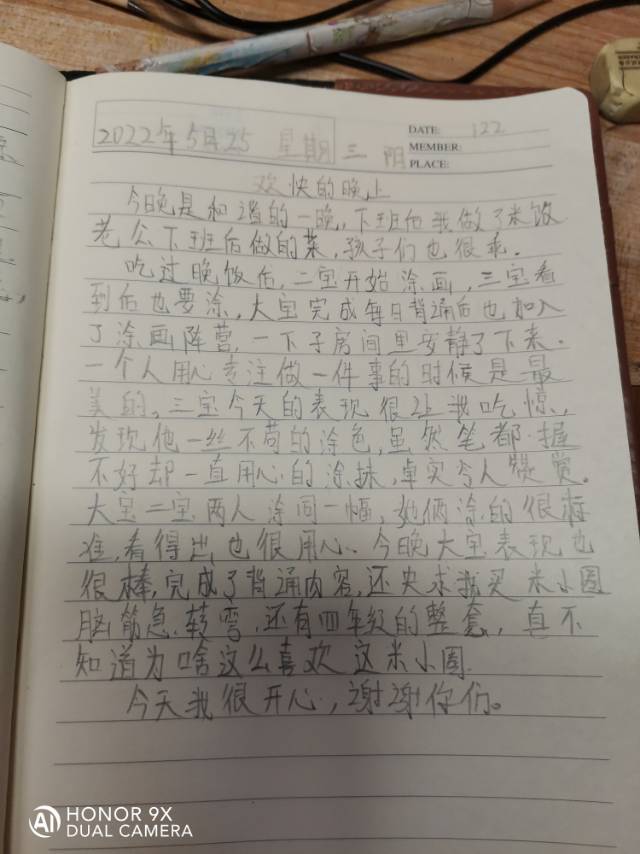 DATE: 122
2022年5月25 星期三 阳
MEMBER:
PLACE:
欢快的晚上
今晚是和谐的一晚,下班后我做了米饭
老公下班后做的菜,孩子们也很乖.
吃过晚饭后,二宝开始涂画,三宝看
到后也要涂,大宝完成每日背诵后也加入
了涂画阵营,一下子房间里安静了下来.
一个人用心专注做一件事的时候是最
美的。三宝今天的表现很让我吃惊,
发现他一丝不苟的涂色,虽然笔都握
不好却一直用心的涂抹,卓实令人赞赏。
大宝二宝两人涂同一幅,她俩涂的很标
准,看得出也很用心.今晚大宝表现也
很棒,完成了背诵内容,还央求我买米小圈
脑筋急转弯,还有四年级的整套,真不
知道为啥这么喜欢这米小圈.
今天我很开心,谢谢你们。
AI HONOR 9X
DUAL CAMERA